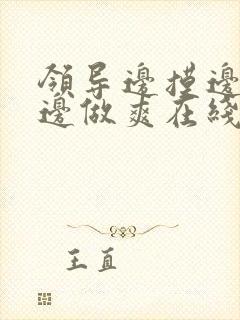 領导邊摸邊
邊做爽在綫
王直